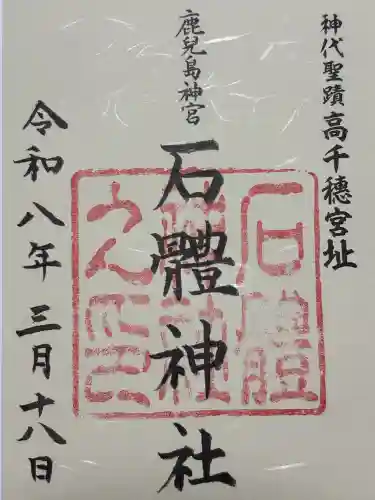 神代聖蹟高千穗宮址
鹿兒島神宮
石體神社
令和八年三月十八日